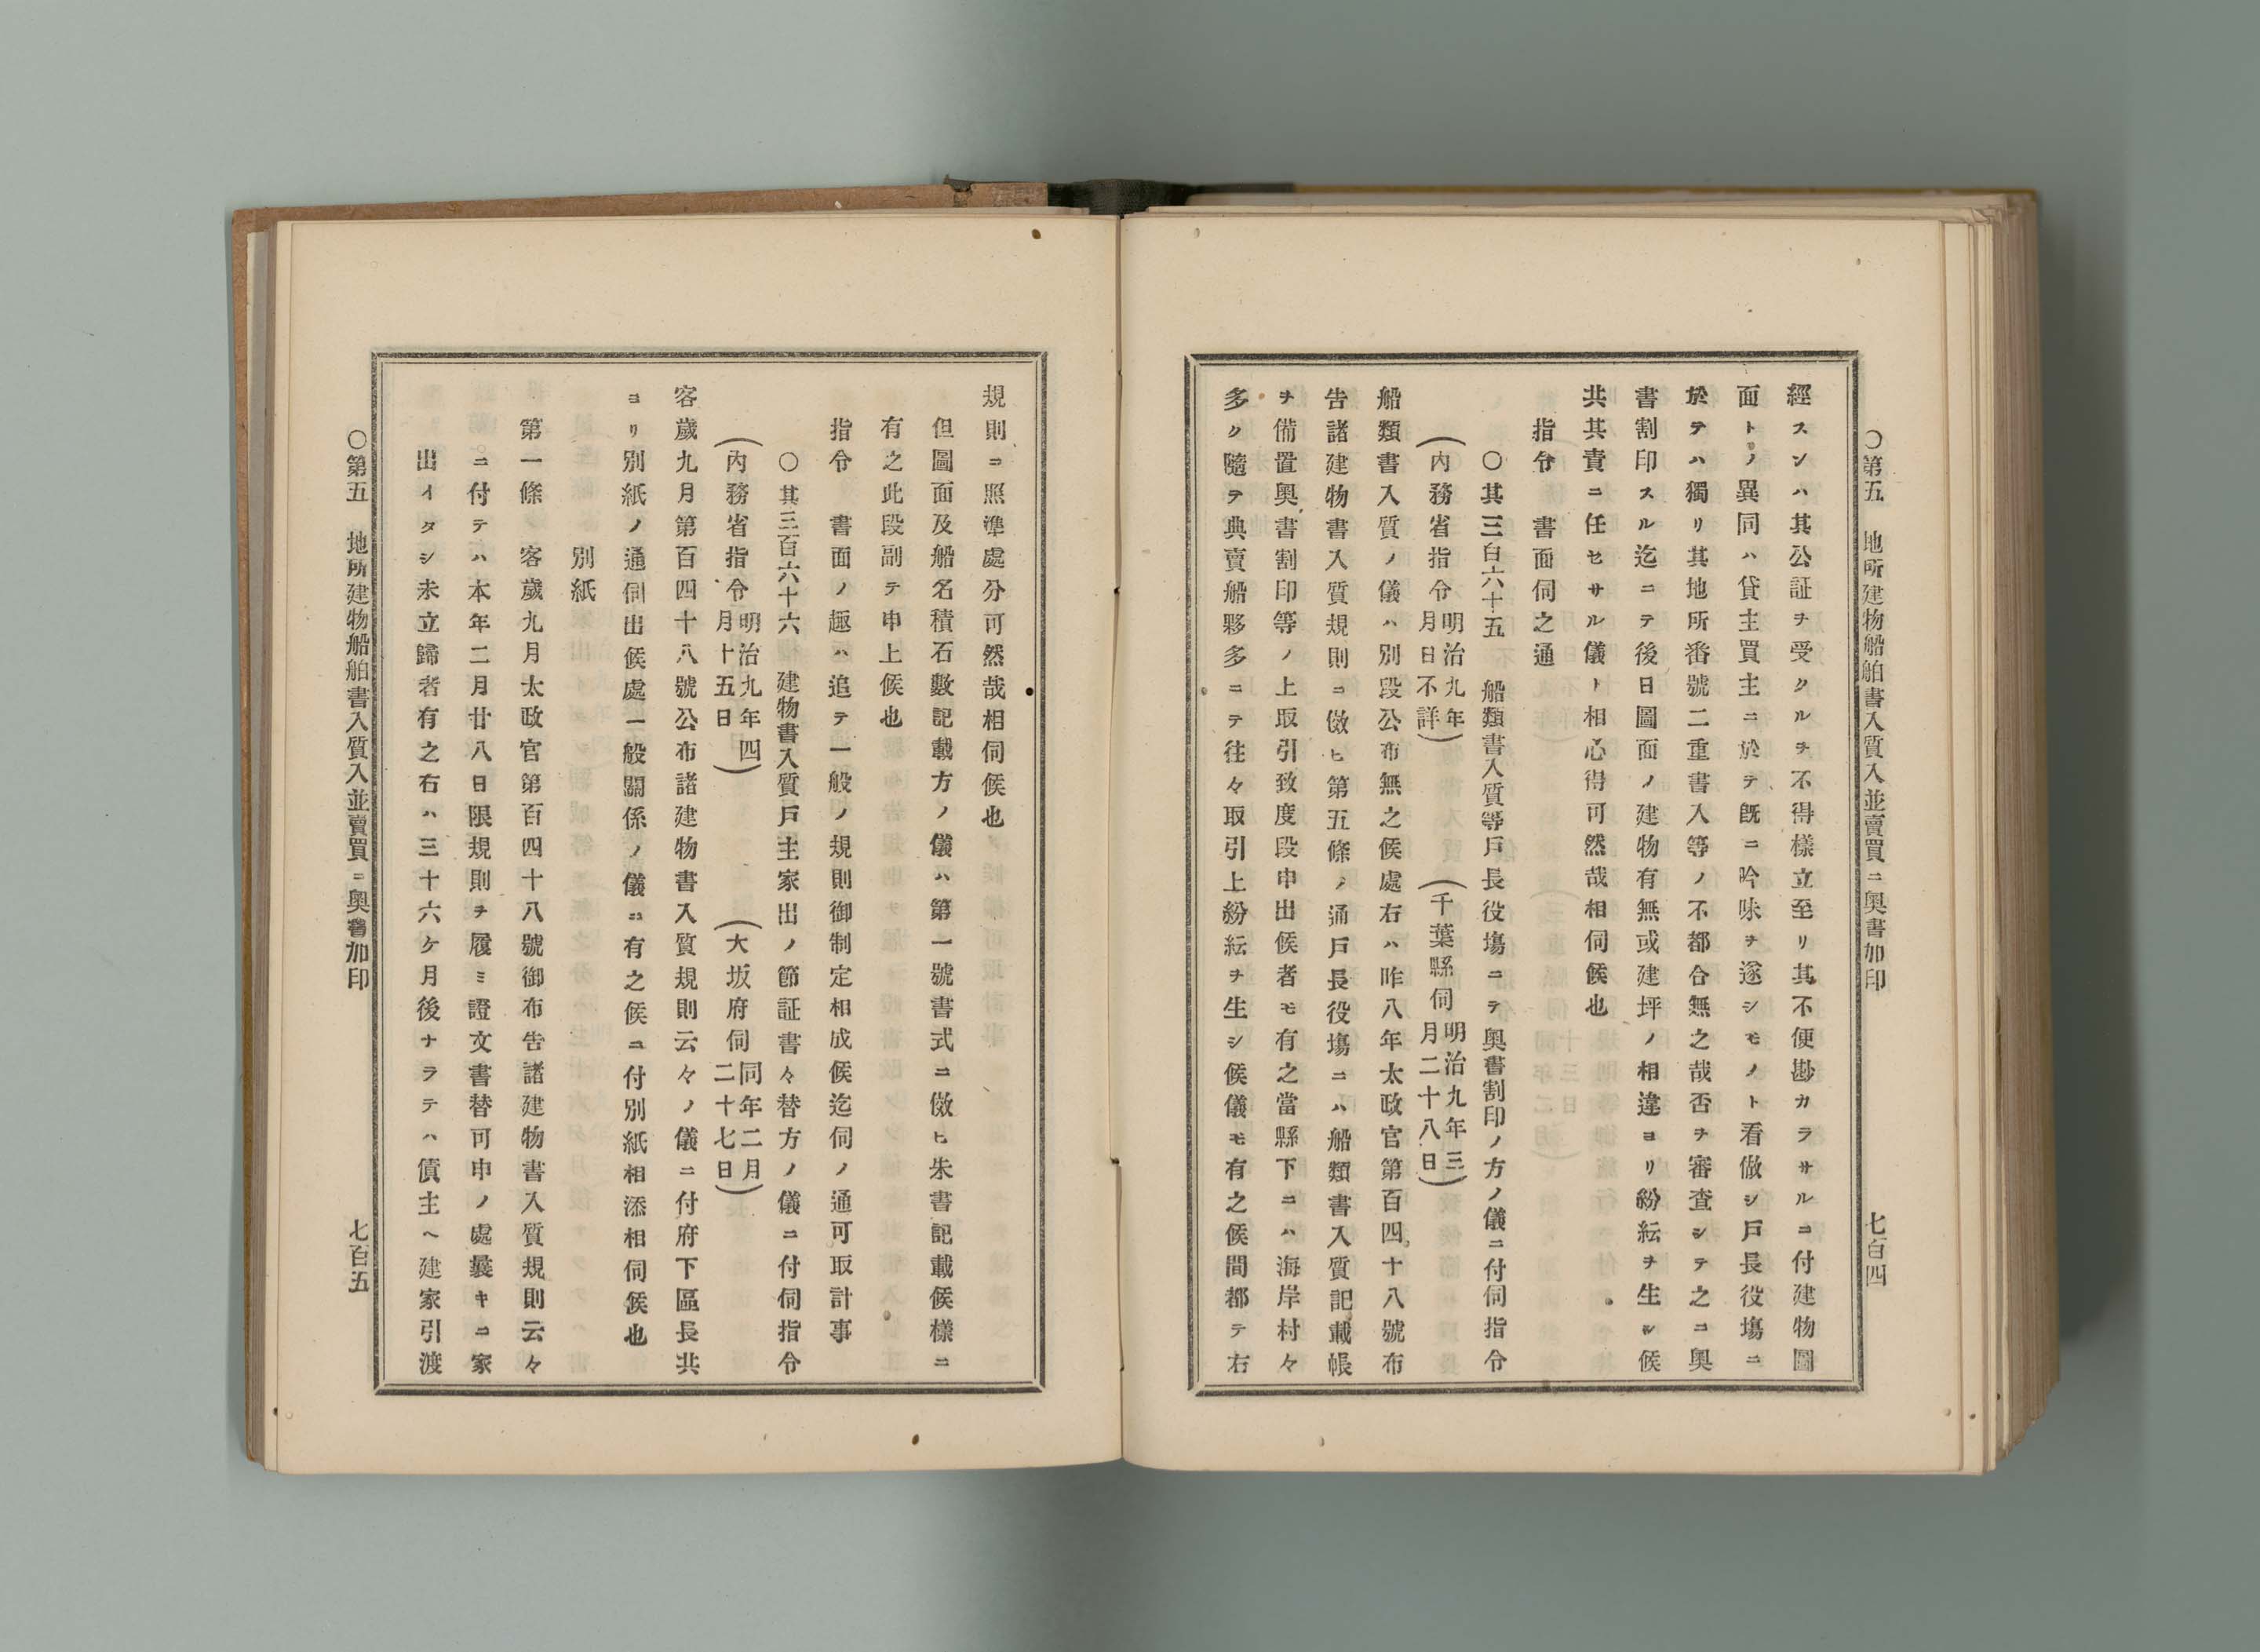 〇第五　地所建物船舶書入質入並賣買ニ奧書加印　七百四
經スンハ其公証ヲ受クルヲ不得樣立至リ其不便尠カラサルニ付建物圖
面トノ異同ハ貸主買主ニ於テ既ニ吟味ヲ遂シモノト看做シ戸長役塲ニ
於テハ獨リ其地所番號二重書入等ノ不都合無之哉否ヲ審査シテ之ニ奧
書割印スル迄ニテ後日圖面ノ建物有無或建坪ノ相違ヨリ紛紜ヲ生ル候
共其責ニ任セサル儀ト相心得可然哉相伺候也
指令　書面伺之通
〇其三百六十五　船類書入質等戸長役塲ニテ奧書割印ノ方ノ儀ニ付伺指令
（內務省指令明治九年月日不詳）　（千葉縣伺明治九年三月二十八日）
船類書入質ノ儀ハ別段公布無之候處右ハ昨八年太政官第百四十八號布
告諸建物書入質規則ニ倣ヒ第五條ノ通戸長役塲ニハ船類書入質記載帳
ヲ備置奧書割印等ノ上取引致度段申出候者モ有之當縣下ニハ海岸村々
多ク隨テ典賣船夥多ニテ往々取引上紛紜ヲ生シ候儀モ有之候間都テ右
規則ニ照準處分可然哉相伺候也
但圖面及船名積石數記載方ノ儀ハ第一號書式ニ倣ヒ朱書記載候樣ニ
有之此段副テ申上候也
指令　書面ノ趣ハ追テ一般ノ規則御制定相成候迄伺ノ通可取計事
〇其三百六十六　建物書入質戸主家出ノ節証書々替方ノ儀ニ付伺指令
（內務省指令明治九年四月十五日）　（大坂府伺同年二月二十七日）
客歲九月第百四十八號公布諸建物書入質規則云々ノ儀ニ付府下區長共
ヨリ別紙ノ通伺出候處一般關係ノ儀ニ有之候ニ付別紙相添相伺候也
別紙
第一條　客歲九月太政官第百四十八號御布告諸建物書入質規則云々
ニ付テハ本年二月廿八日限規則ヲ履ミ證文書替可申ノ處曩キニ家
出イタシ未立歸者有之右ハ三十六ケ月後ナラテハ債主ヘ建家引渡
〇第五　地所建物船舶書入質入並賣買ニ奧書加印　七百五